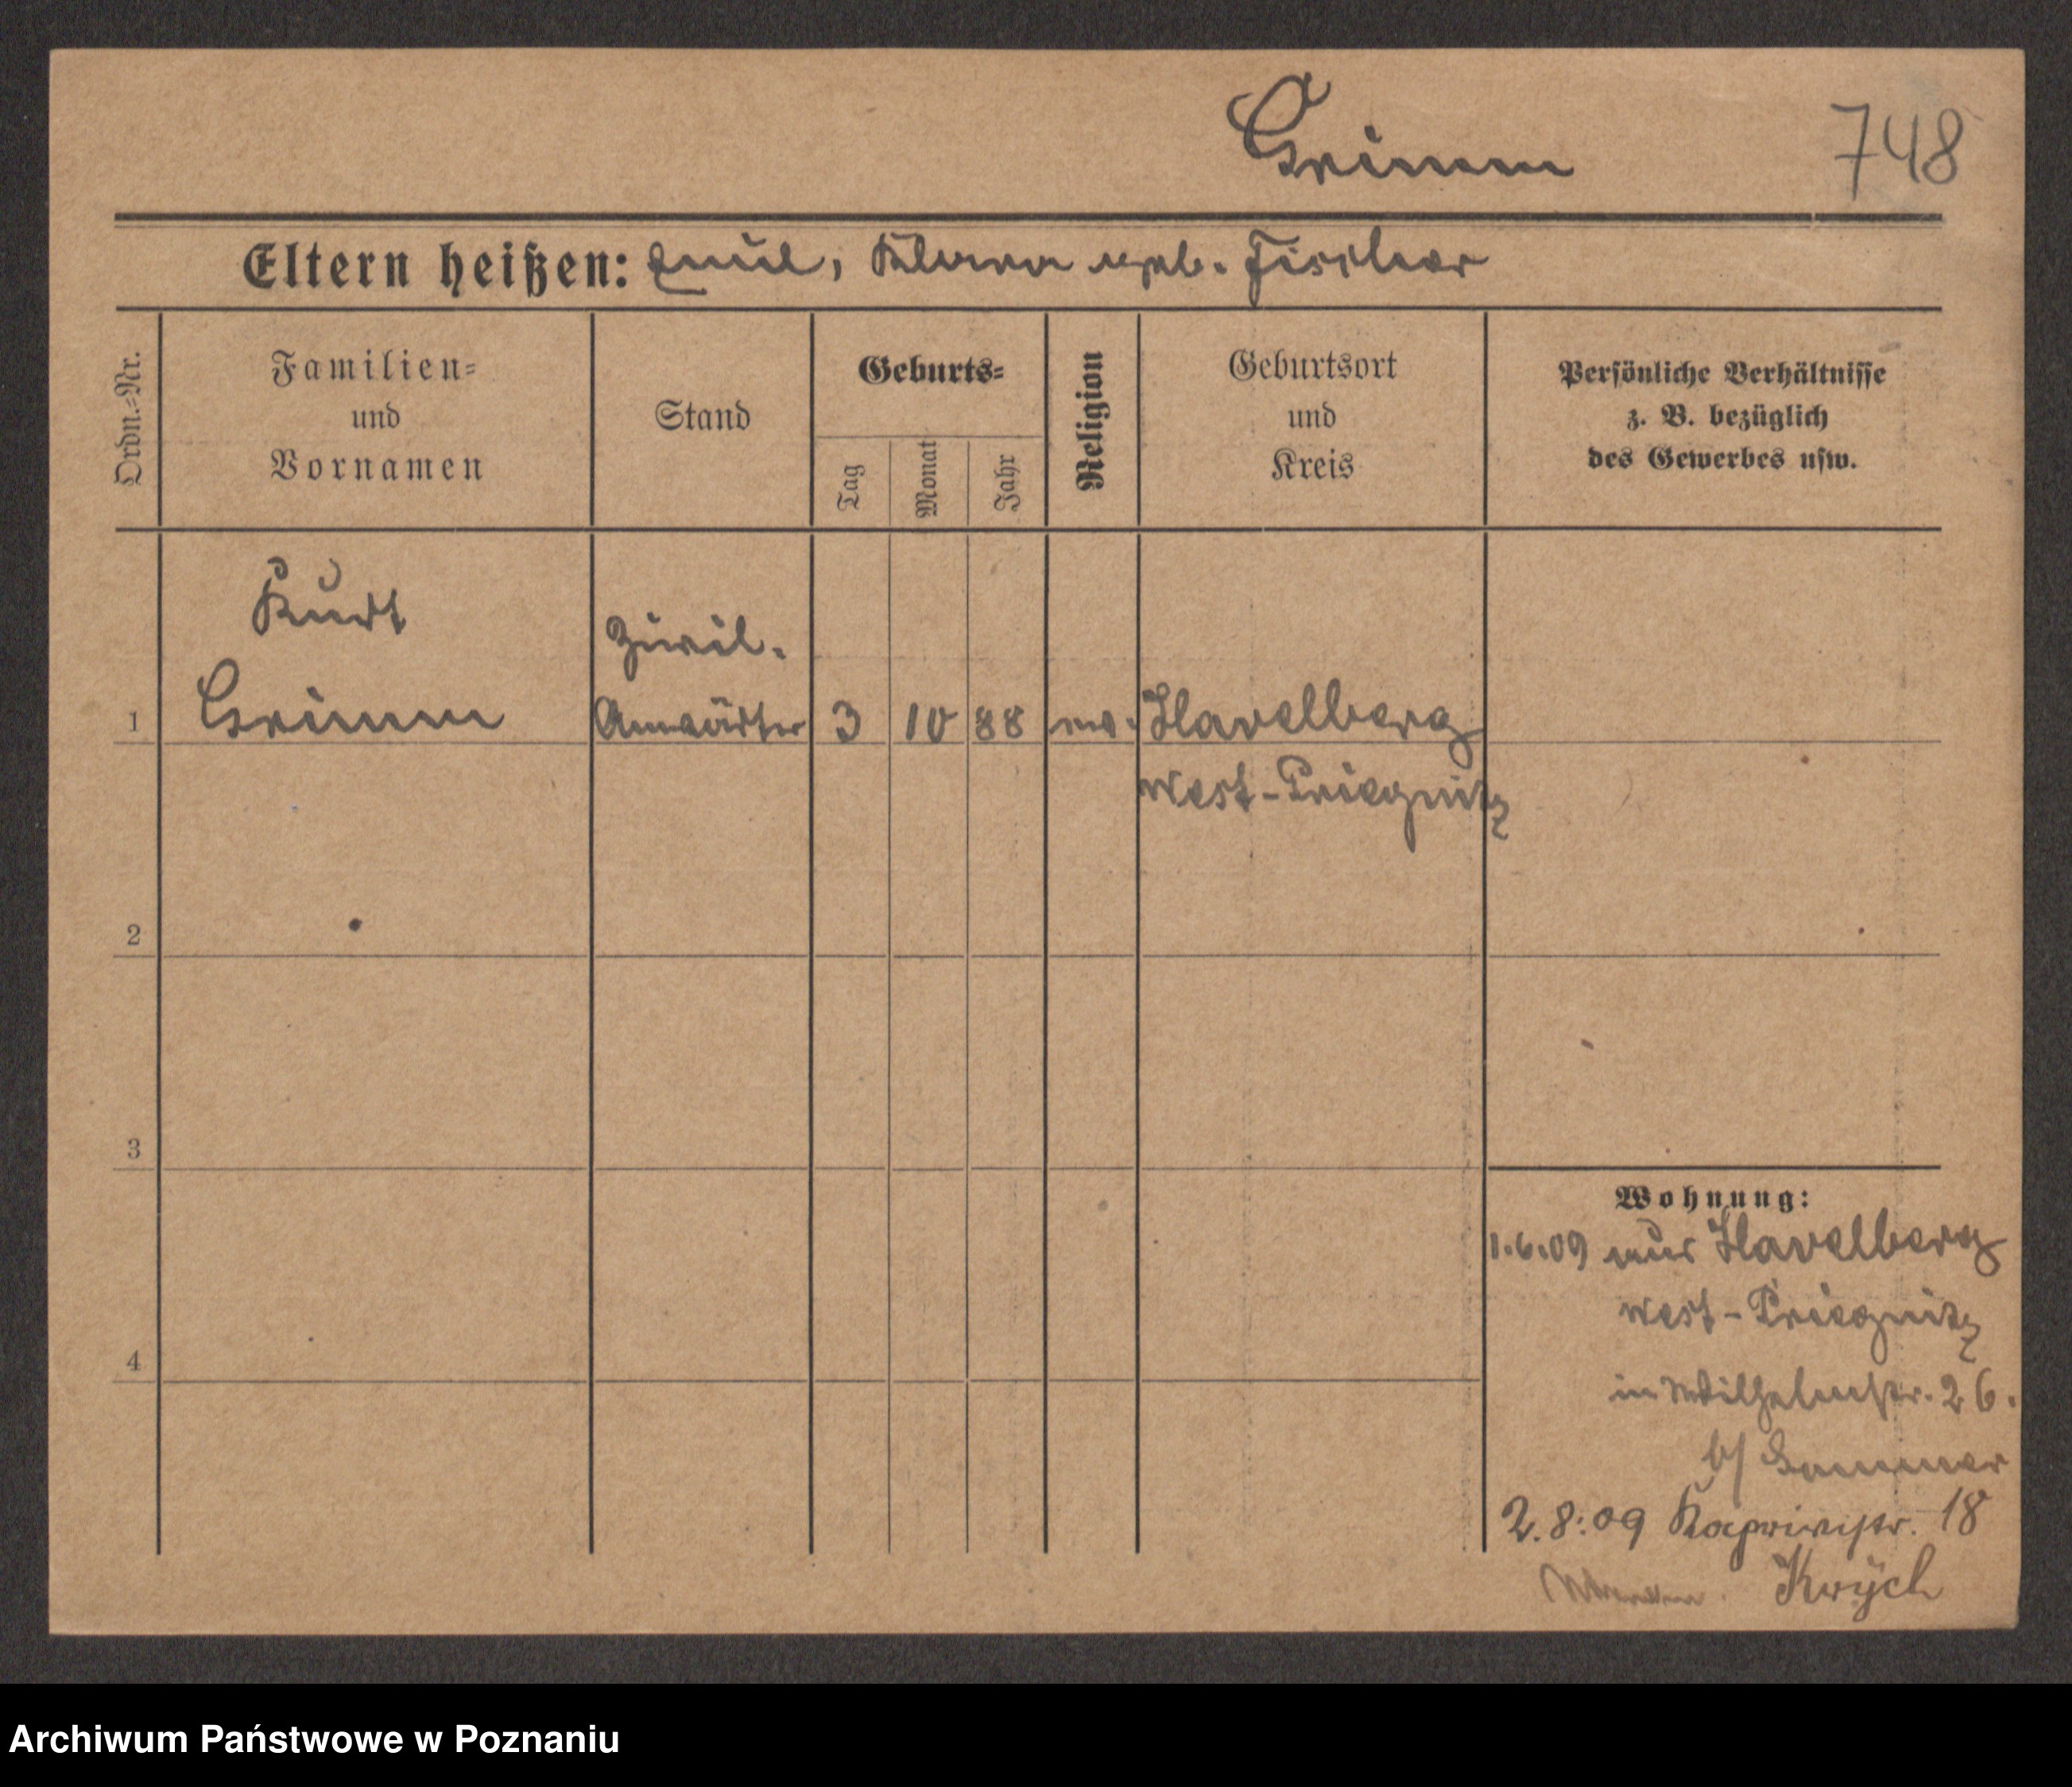 Grimm
748
Eltern heißen: Emil, Klara geb. Fischer
Ordn.-Nr.
Familien-
und
Vornamen
Stand
Geburts-
Tag
Monat
Jahr
Religion
Geburtsort
und
Kreis
Persönliche Verhältnisse
z. B. bezüglich
des Gewerbes usw.
Kurt
Zivil-
1 Grimm Anwärter 3 10 88 ev. Havelberg
West-Priegnitz
2
3
4
Wohnung:
1.6.09 aus Havelberg
West-Priegnitz
in Wilhelmstr. 26.
b/ Sommer
2.8.09 Kaprivistr. 18
Krÿch
Archiwum Państwowe w Poznaniu